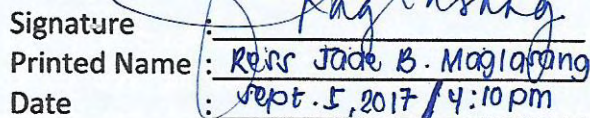 Signature :
Printed Name : Reiss Jade B. Maglasang
Date : Sept. 5, 2017 / 4:10 pm